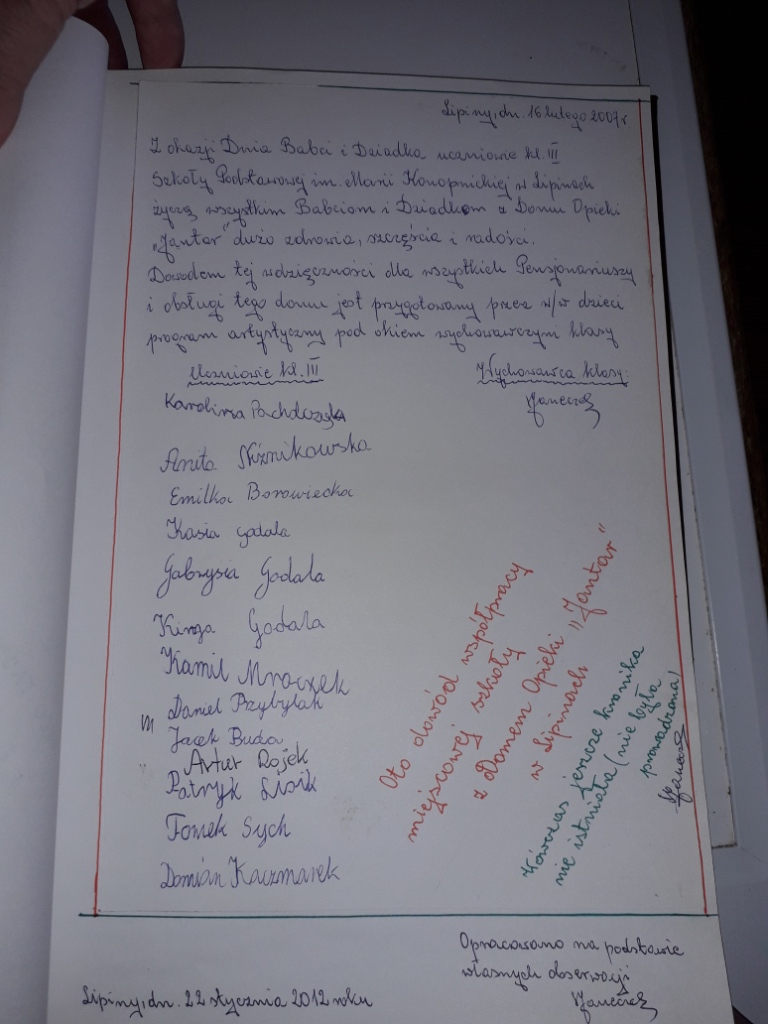 Lipiny, dn. 16 lutego 2007 r.
Z okazji Dnia Babci i Dziadka uczniowie kl. III
Szkoły Podstawowej im. Marii Konopnickiej w Lipinach
życzą wszystkim Babciom i Dziadkom z Domu Opieki
"Jantar" dużo zdrowia, szczęścia i radości.
Dowodem tej wdzięczności dla wszystkich Pensjonariuszy
i obsługi tego domu jest przygotowany przez w/w dzieci
program artystyczny pod okiem wychowawczyni klasy
Uczniowie kl. III
Wychowawca klasy:
Karolina
Anita Niźnikowska
Emilka Borowiecka
Kasia Godala
Gabrysia Godala
Kinga Godala
Kamil Mroczek
Daniel Przybylak
Jacek Buda
Artur Rojek
Patryk Lisik
Tomek Sych
Damian Kaczmarek
Oto dowód współpracy
miejscowej szkoły
z Domem Opieki "Jantar"
w Lipinach
Wówczas jeszcze kronika
nie istniała (nie była
prowadzona)
Opracowano na podstawie
własnych obserwacji
Lipiny, dn. 22 stycznia 2012 roku